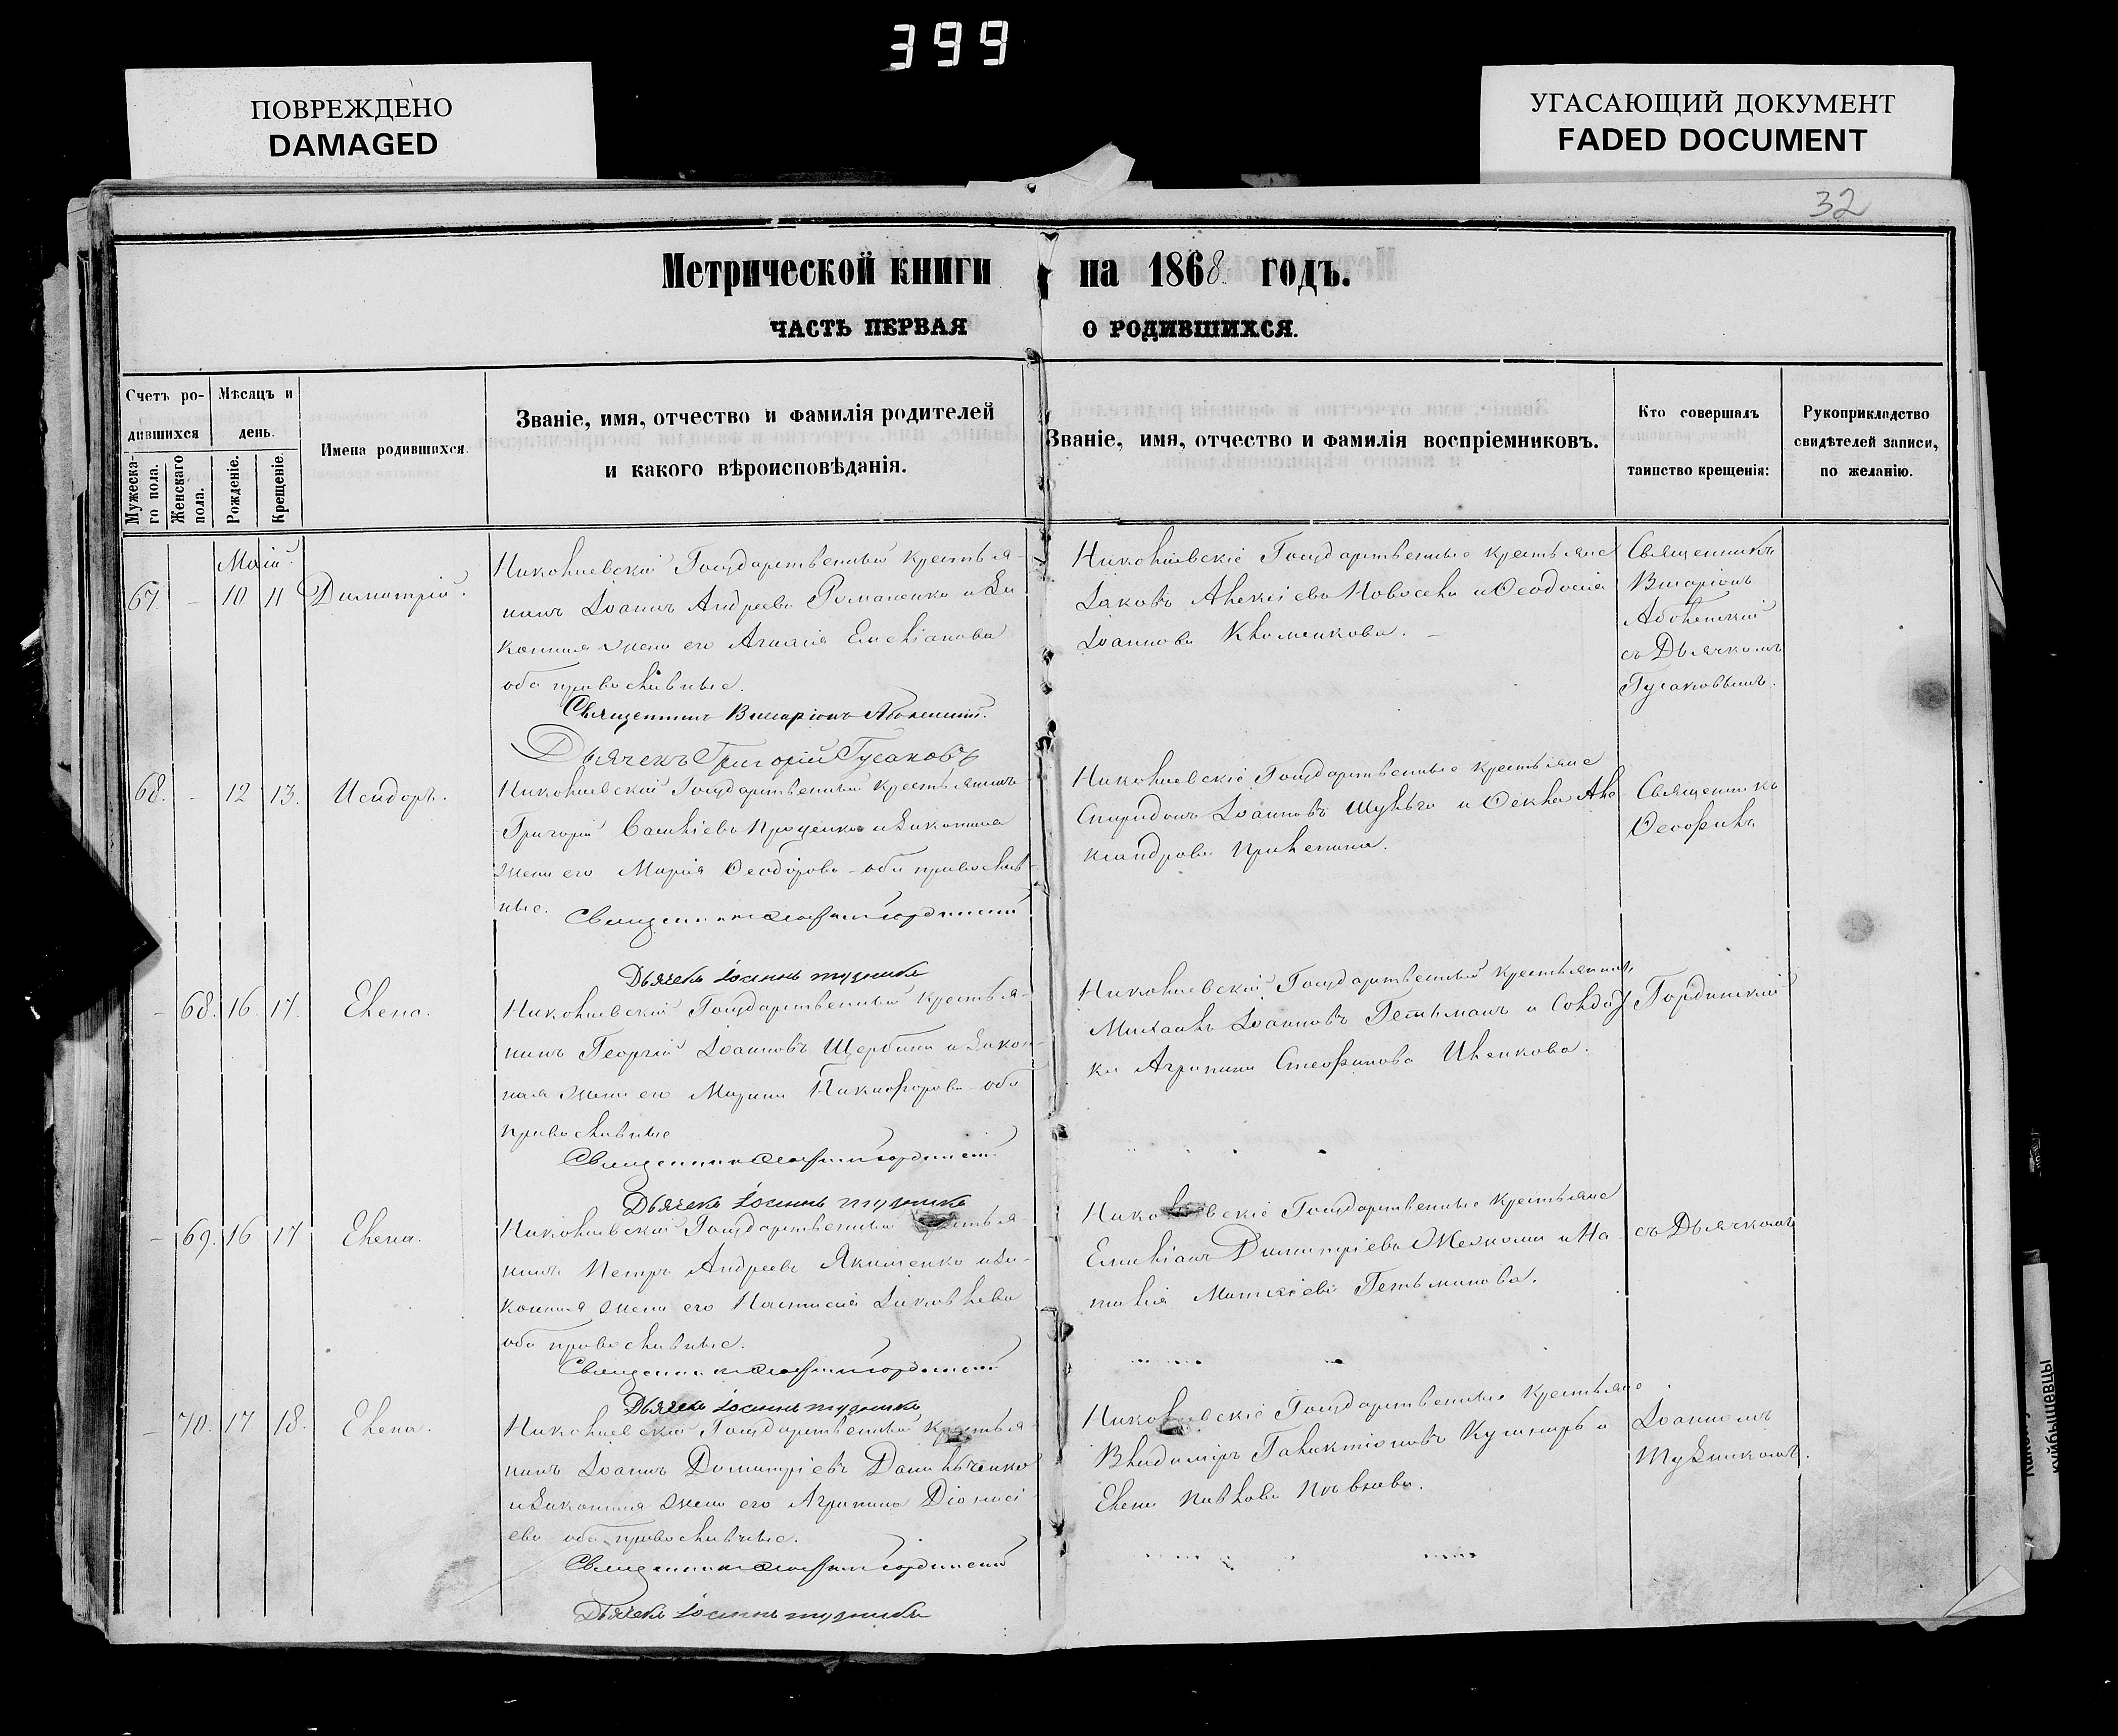 399
ПОВРЕЖДЕНО
DAMAGED
УГАСАЮЩИЙ ДОКУМЕНТ
FADED DOCUMENT
32
Метрической книги на 1868 годъ.
ЧАСТЬ ПЕРВАЯ О РОДИВШИХСЯ.
Счетъ ро-
дившихся
Мужеска-
го пола.
Женскаго
пола.
Мѣсяцъ и
день.
Рожденіе.
Крещеніе.
Имена родившихся.
Званіе, имя, отчество и фамилія родителей
и какого вѣроисповѣданія.
Званіе, имя, отчество и фамилія воспріемниковъ.
Кто совершалъ
таинство крещенія:
Рукоприкладство
свидѣтелей записи,
по желанію.
Маій
67. – 10 11 Димитрій.
Николаевскій Государственный крестья-
нинъ Іоаннъ Андреевъ Романенко и За-
конная жена его Агапія Емеліанова
оба православные.
Священникъ Виссаріонъ
Дьячекъ Григорій Гусаковъ
Николаевскіе Государственные крестьяне
Іаковъ Алексіевъ Новоселъ и Ѳеодосія
Іоаннова Клименкова. –
Священникъ
Виссаріонъ
съ Дьячкомъ
Гусаковымъ.
68. – 12 13. Исидоръ.
Николаевскій Государственный крестьянинъ
Григорій Савеліевъ Проценко и Законная
жена его Марія Ѳеодорова оба православ-
ные.
Священникъ Ѳеофилъ Гординскій
Дьячекъ Іоаннъ
Николаевскіе Государственные крестьяне
Спиридонъ Іоанновъ Шульга и Ѳекла Але
ксандрова
Священникъ
Ѳеофилъ
– 68. 16. 17. Елена.
Николаевскій Государственный крестья-
нинъ Георгій Іоанновъ Щербина и Закон-
ная жена его Марина Никифорова оба
православные
Священникъ Ѳеофилъ Гординскій
Дьячекъ Іоаннъ
Николаевскій Государственный крестьянинъ
Михаилъ Іоанновъ Гетьманъ и Солдат
ка Агрипина Стефанова
Гординскій
– 69. 16 17 Елена.
Николаевскій Государственный крестья-
нинъ Петръ Андреевъ Якименко и За-
конная жена его Настасія Іаковлева
оба православные.
Священникъ Ѳеофилъ Гординскій
Дьячекъ Іоаннъ
Николаевскіе Государственные крестьяне
Емиліанъ Димитріевъ и На-
талія Гетьманова.
съ Дьячкомъ
– 70. 17 18. Елена.
Николаевскій Государственный крестья-
нинъ Іоаннъ Димитріевъ Данильченко
и Законная жена его Агрипина Діонисі-
ева оба православные.
Священникъ Ѳеофилъ Гординскій
Дьячекъ Іоаннъ
Николаевскіе Государственные крестьяне
Владиміръ Галактіоновъ Кушниръ и
Елена Павлова
Іоанномъ
куйбышевцы